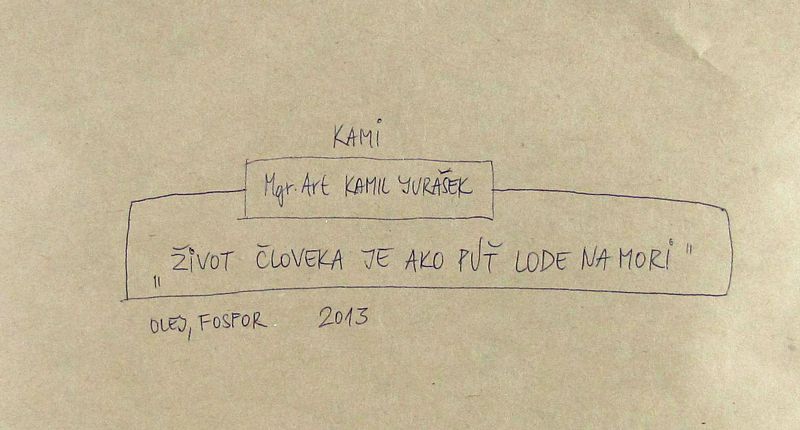 KAMI
Mgr. Art KAMIL JURÁŠEK
„ ŽIVOT ČLOVEKA JE AKO PÚŤ LODE NA MORI "
OLEJ, FOSFOR 2013